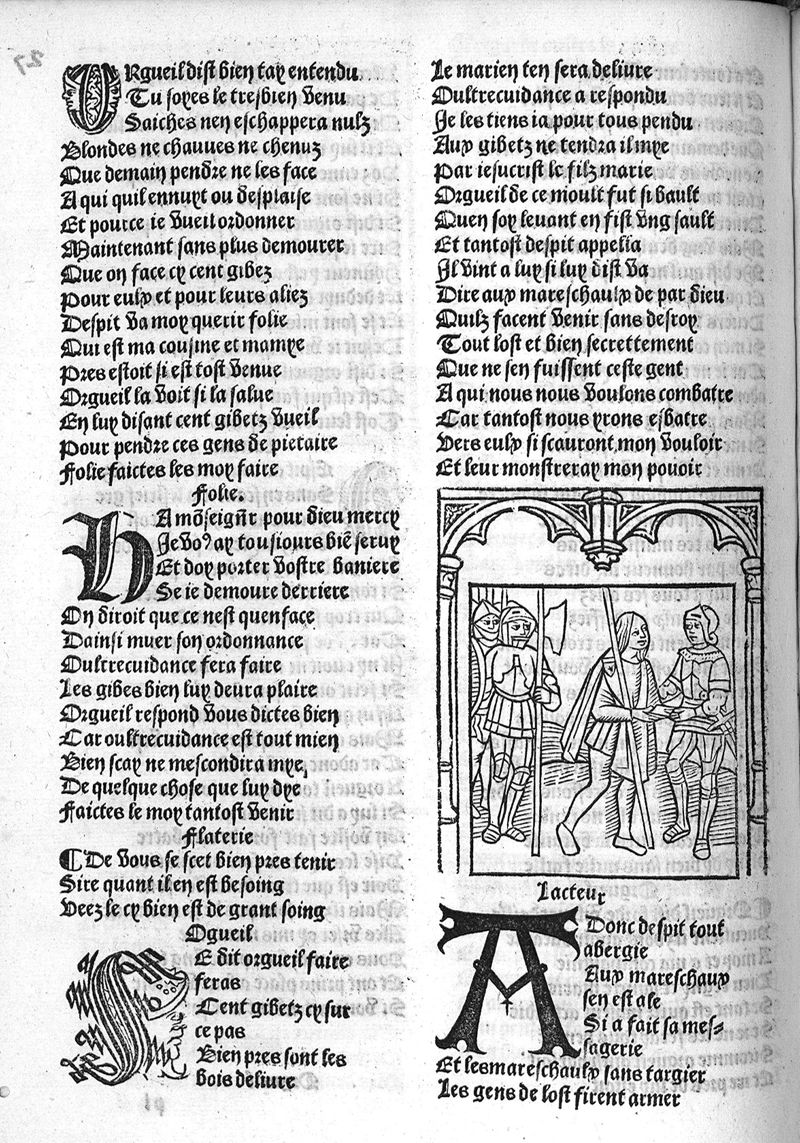 27
ORgueil dist bien tay entendu
Tu soyes le tresbien venu
Saiches nen eschappera nulz
Blondes ne chauues ne chenuz
Que demain pendre ne les face
A qui quil ennuyt ou desplaise
Et pource ie vueil ordonner
Maintenant sans plus demourer
Que on face cy cent gibez
Pour eulx et pour leurs aliez
Despit va moy querir folie
Qui est ma cousine et mamye
Pres estoit si est tost venue
Orgueil la voit si la salue
En luy disant cent gibetz vueil
Pour pendre ces gens de pietaire
Folie faictes les moy faire
Folie.
HA mōseignr̄ pour dieu mercy
Je voꝰ ay tousiours biē seruy
Et doy porter vostre baniere
Se ie demoure derriere
On diroit que ce nest quenface
Dainsi muer son ordonnance
Oultrecuidance fera faire
Les gibes bien luy deura plaire
Orgueil respond vous dictes bien
Car oultrecuidance est tout mien
Bien scay ne mescondira mye,
De quelque chose que luy dye
Faictes le moy tantost venir
Flaterie
¶ De vous se scet bien pres tenir
Sire quant il en est besoing
Veez le cy bien est de grant soing
Ogueil
SE dit orgueil faire
feras
Cent gibetz cy sur
ce pas
Bien pres sont les
bois deliure
Le marien ten sera deliure
Oultrecuidance a respondu
Je les tiens ia pour tous pendu
Aux gibetz ne tendra il mye
Par iesucrist le filz marie
Orgueil de ce moult fut si hault
Quen soy leuant en fist vng sault
Et tantost despit appella
Il vint a luy si luy dist va
Dire aux mareschaulx de par dieu
Quilz facent venir sans desroy
Tout lost et bien secrettement
Que ne sen fuissent ceste gent
A qui nous nous voulons combatre
Car tantost nous yrons esbatre
Vers eulx si scauront mon vouloir
Et leur monstreray mon pouoir
Lacteur
ADonc despit tout
abergie
Aux mareschaux
sen est ale
Si a fait sa mes-
sagerie
Et les mareschaulx sans targier
Les gens de lost firent armer